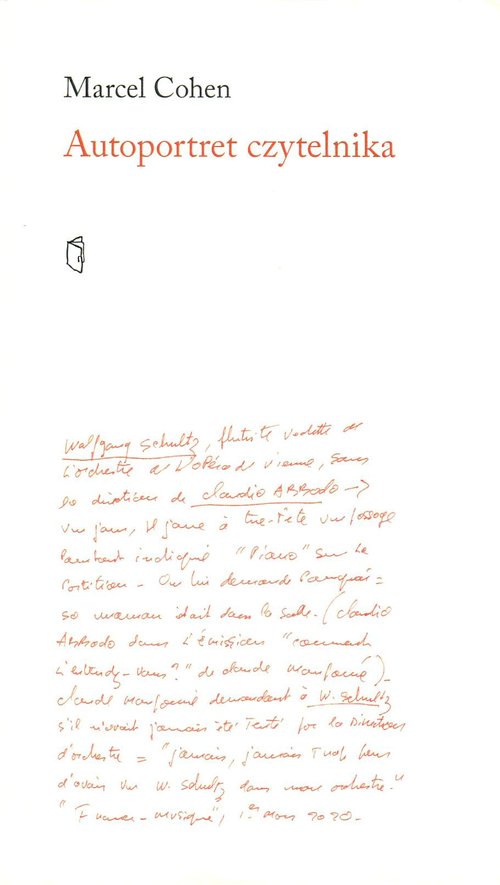 Marcel Cohen
Autoportret czytelnika
Wolfgang Schultz, flutiste vedette de
L'orchestre de L'Opéra de Vienne, sous
la direction de Claudio ABBADO →
Un jour, il joue à tue-tête un passage
Pourtant indiqué "Piano" sur la
Partition - On lui demande Pourquoi =
sa maman était dans la salle. (Claudio
ABBADO dans L'Émission "comment
L'entendez-vous?" de claude Maupomé)-
claude Maupomé demandant à W. Schultz
s'il n'avait jamais été Tenté par la Direction
d'orchestre = "jamais, jamais Trop heureux
d'avoir un W. Schultz dans mon orchestre."
"France-Musique", 1er Mars 2020-